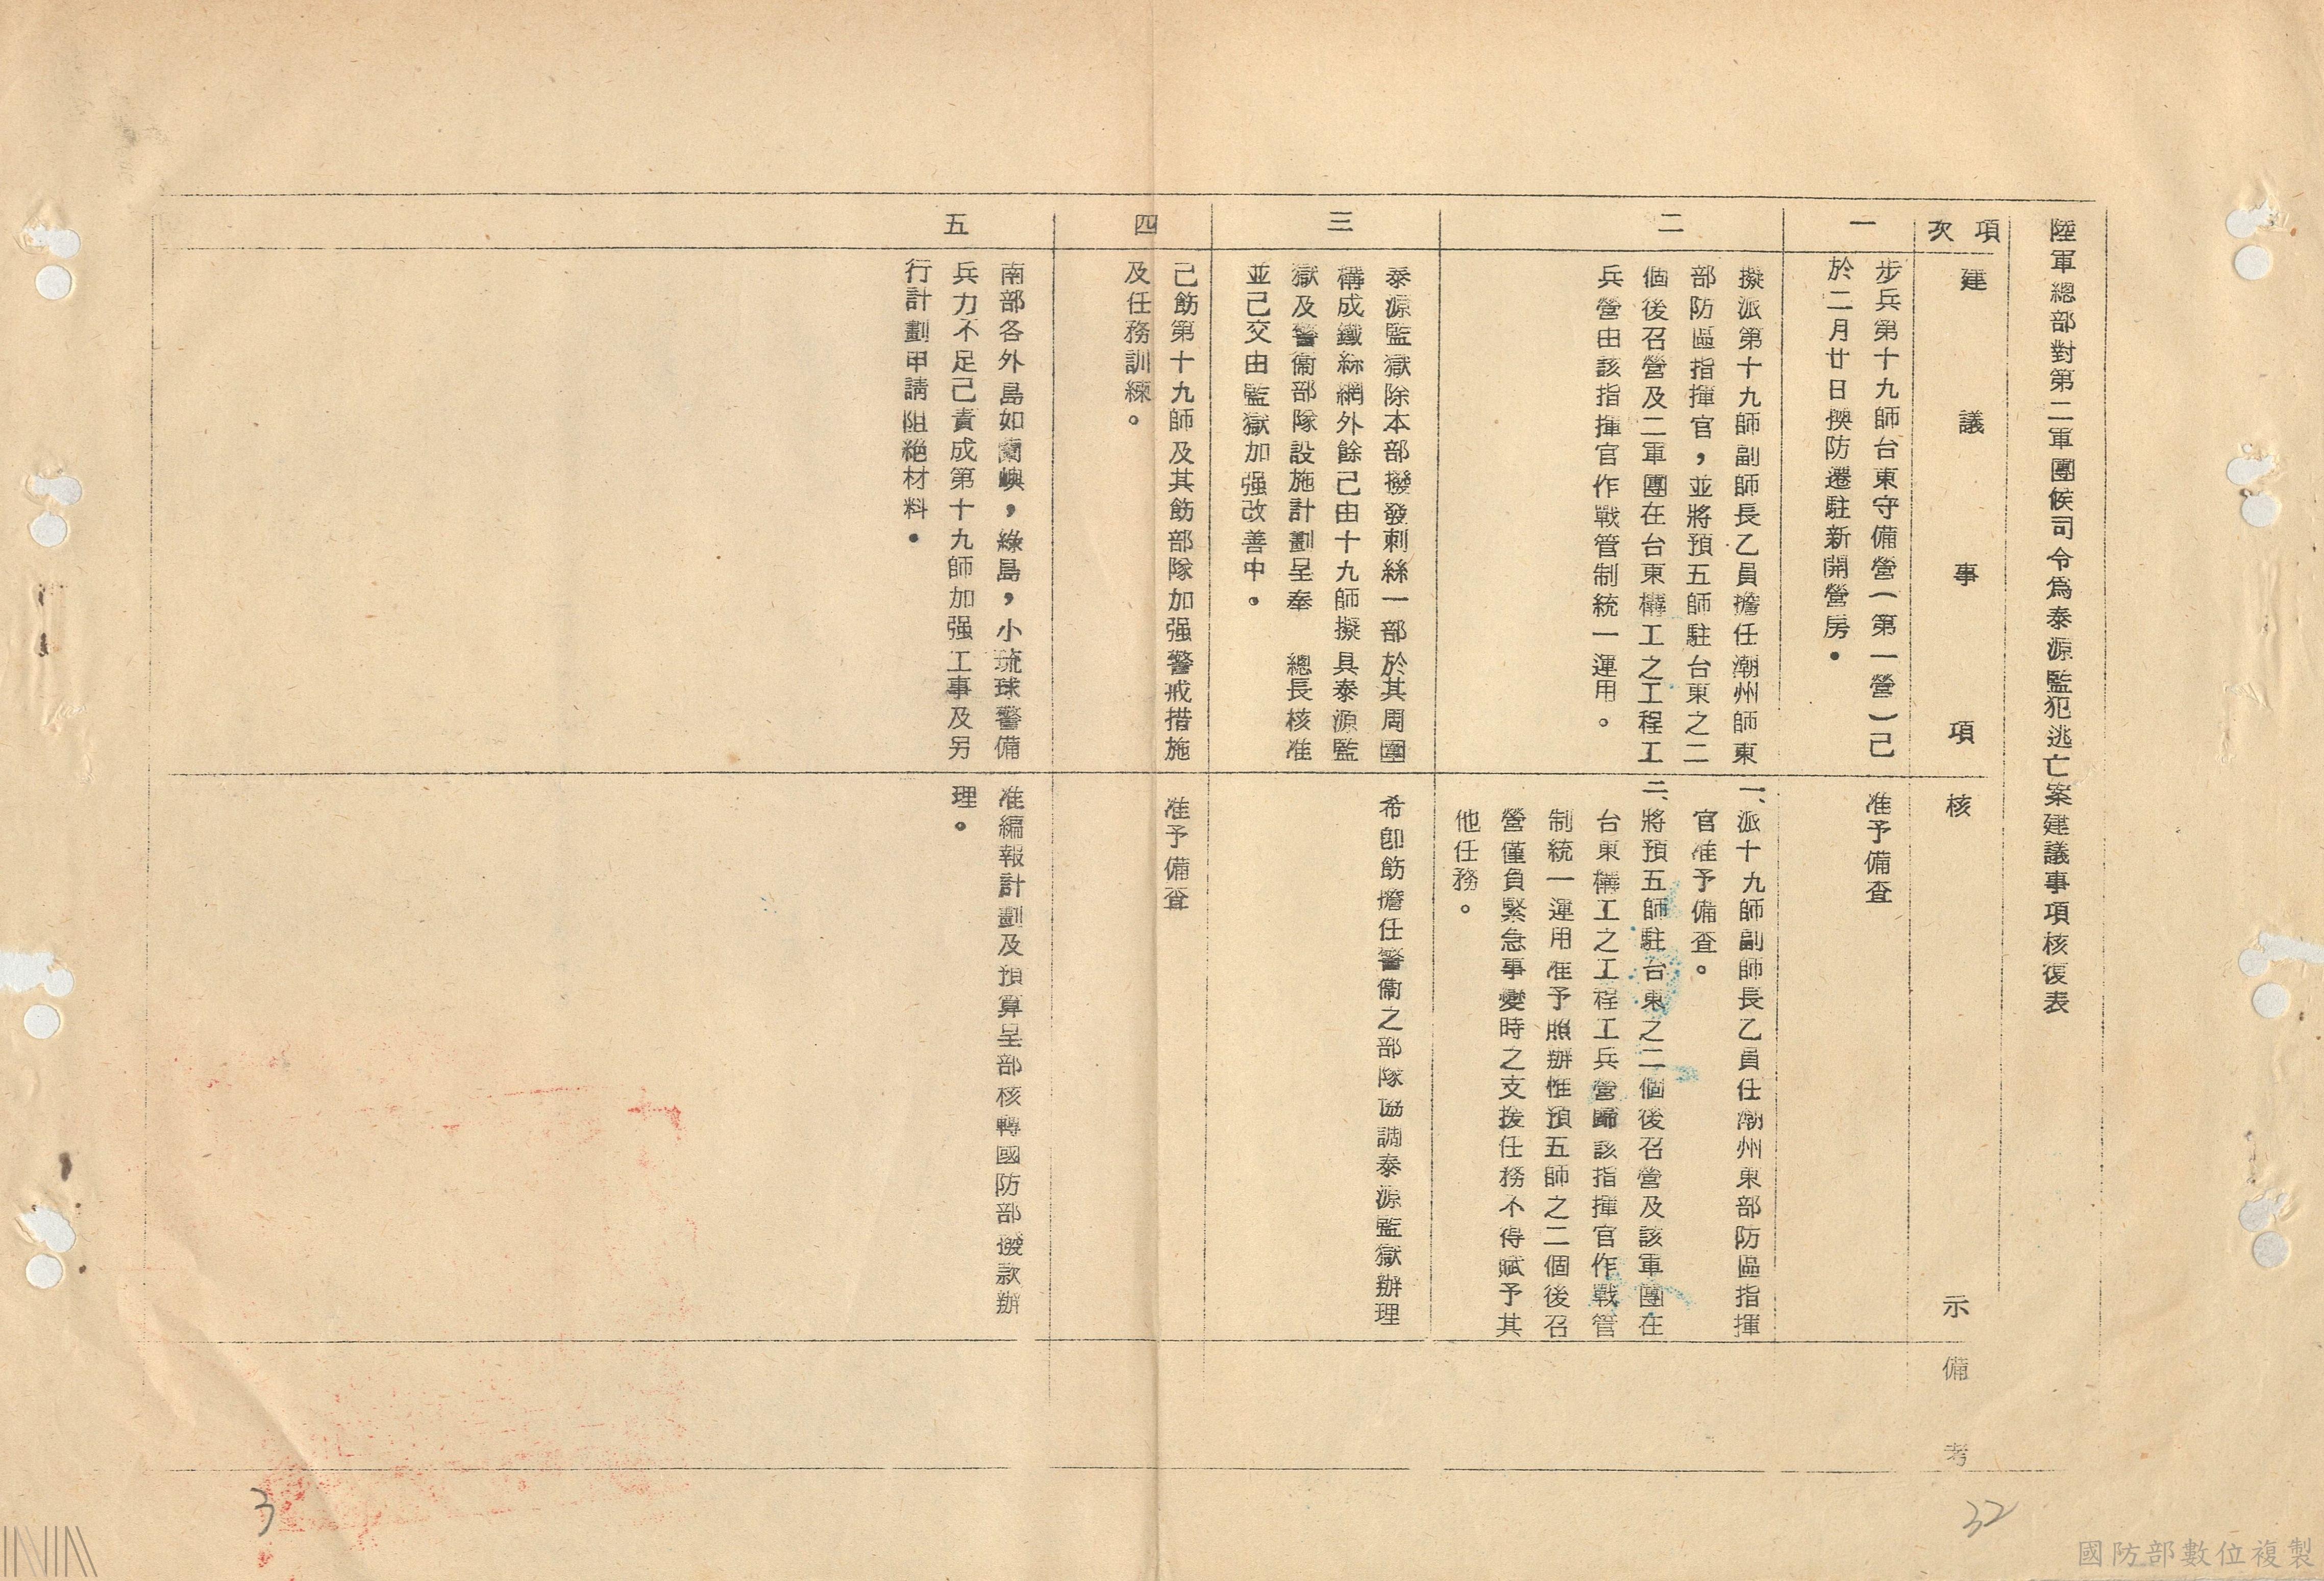 陸軍總部對第二軍團候司令為泰源監犯逃亡案建議事項核復表
項次
建議事項
核示
備考
一
步兵第十九師台東守備營(第一營)己
於二月廿日換防遷駐新開營房。
准予備查
二
擬派第十九師副師長乙員擔任潮州師東
部防區指揮官,並將預五師駐台東之二
個後召營及二軍團在台東構工之工程工
兵營由該指揮官作戰管制統一運用。
一、派十九師副師長乙員任潮州東部防區指揮
官准予備查。
二、將預五師駐台東之二個後召營及該軍團在
台東構工之工程工兵營歸該指揮官作戰管
制統一運用准予照辦惟預五師之二個後召
營僅負緊急事變時之支援任務不得賦予其
他任務。
三
泰源監獄除本部撥發刺絲一部於其周圍
構成鐵絲網外餘己由十九師擬具泰源監
獄及警衞部隊設施計劃呈奉 總長核准
並己交由監獄加强改善中。
希卽飭擔任警衞之部隊協調泰源監獄辦理
四
己飭第十九師及其飭部隊加强警戒措施
及任務訓練。
准予備查
五
南部各外島如蘭嶼,綠島,小琉球警備
兵力不足己責成第十九師加强工事及另
行計劃申請阻絕材料。
准編報計劃及預算呈部核轉國防部撥款辦
理。
32
3
國防部數位複製